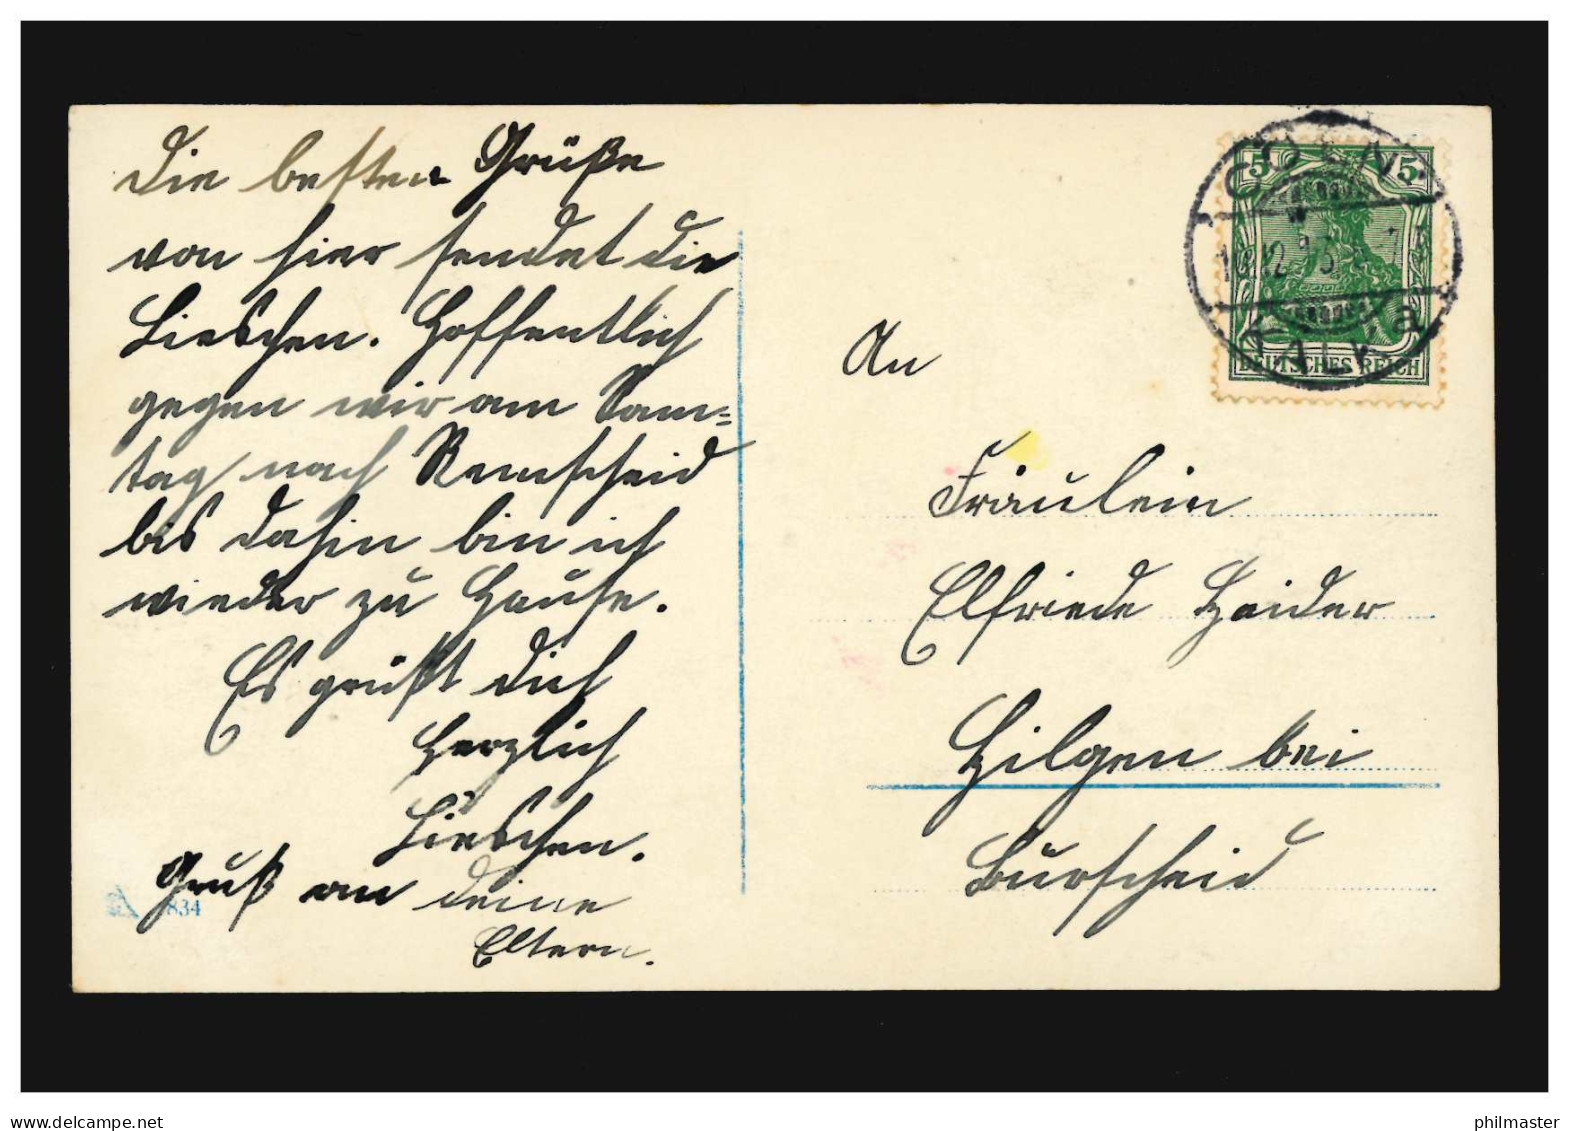 Die besten Grüße
von hier sendet die
Lieschen. Hoffentlich
gegen wir am Sam=
tag nach Remscheid
bis dahin bin ich
wieder zu Hause.
Es grüßt dich
herzlich
Lieschen.
Gruß an deine
Eltern.
834
5 5
CÖLN
KALK
DEUTSCHES REICH
An
Fräulein
Elfriede Haider
Hilgen bei
Burscheid
www.delcampe.net
philmaster